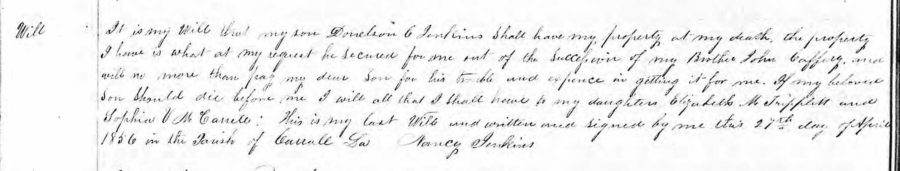 Will It is my Will that my son Donelson C Jenkins shall have my property at my death, the property
I have is what at my request he secured for me out of the succession of my Brother John Caffery, and
will no more than pay my dear Son for his trouble and expence in getting it for me. If my beloved
Son should die before me I will all that I shall have to my daughters Elizabeth M Tripplett and
Sophia O This is my last Will and written and signed by me this 27th day of April
1856 in the Parish of Carroll La Nancy Jenkins